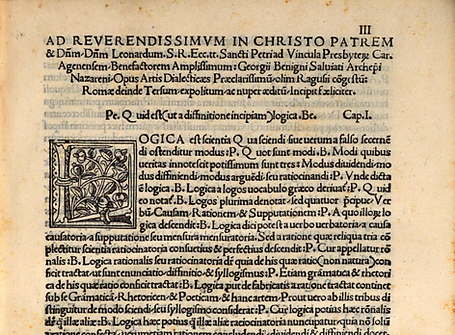 III
AD REVERENDISSIMVM IN CHRISTO PATREM
& Dñm Dñm Leonardum.S.R.Ecc.tt.Sancti Petri ad Vincula Presbyteꝝ Car.
Agenensem.Benefactorem Amplissimum:Georgii Benigni Saluiati Archepi
Nazareni.Opus Artis Dialecticæ Præclarissimũ.olim Ragusii cõgestũ:
Romæ deinde Tersum.expolitum.ac nuper æditũ.Incipit fæliciter.
Pe. Quid est(ut a diffinitione incipiam)logica.Be. Cap.I.
LOGICA est scientia Qua sciendi siue uerum a falso secernẽ
di ostenditur modus:P. Quot sunt modi.B.Modi quibus
ueritas innotescit potissimum sunt tres:Modus diuidendi.mo
dus diffiniendi.modus arguẽdi seu ratiocinandi:P.Vnde dicta
ẽ logica.B.Logica a logos uocabulo græco deriuat:P.Quid
eo notat.B.Logos plurima denotat.sed quatuor p̃cipue Ver
bũ.Causam.Rationem.& Supputationem:P.A quo illoꝝ lo
gica descendit:B.Logica dici potest a uerbo uerbatoria:a causa
causatoria:a supputatione seu mensura mensuratoria.Sed a ratione quæ reliqua tria cõ
plectitur scientia ratiocinatoria consuetius & perfectius descendit:P.Cur appellatur rõ
nalis:B.Logica rationalis seu ratiocinatoria dr̃ quia de his quæ ratio(non natura)con
ficit tractat:ut sunt enunciatio.diffinitio.& syllogismus:P.Etiam gramatica & rhetori
ca de his quæ ratio conficit tractat:B.Logica put de fabricatis a ratione tractat continet
sub se Gramaticã.Rhetoricen & Poeticam.& hanc artem.Prout uero ab illis tribus di
stinguitur de modo sciendi.seu syllogismo considerat:P.Cur logica potius hæc rõnalis
dr̃ q̃ illæ aliæ:B.Logica potius q̃ illæ aliæ ratiocinatoria nuncupatur.quia nõ sol